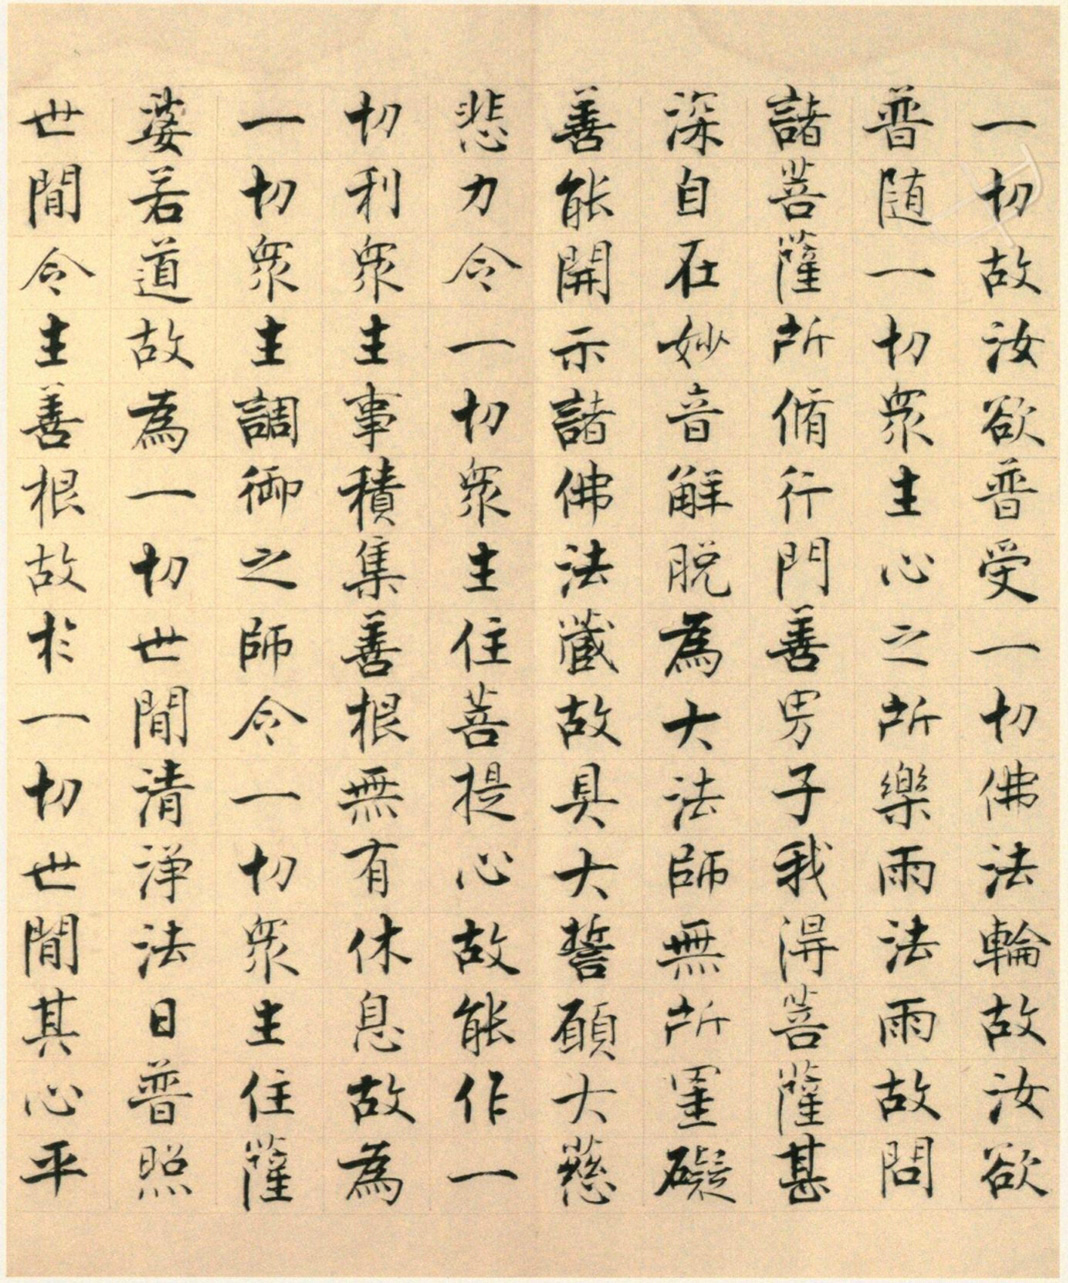 一切故汝欲普受一切佛法輪故汝欲
普随一切衆生心之所樂雨法雨故問
諸菩薩所脩行門善男子我得菩薩甚
深自在妙音解脱為大法師無所罣礙
善能開示諸佛法蔵故具大誓願大慈
悲力令一切衆生住菩提心故能作一
切利衆生事積集善根無有休息故為
一切衆生調御之師令一切衆生住薩
婆若道故為一切世間清浄法日普照
世間令生善根故於一切世間其心平